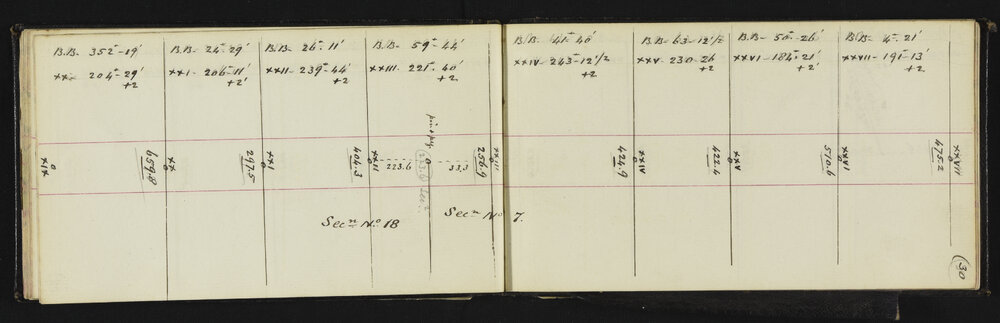 B.B- 352°-19'
xx- 204°-29'
+2
B.B- 24°-29'
xxI- 206°-11'
+2'
B.B- 26°-11'
xxII- 239°-44'
+2
B.B- 59°-44'
xxIII- 221°-40'
+2
B.B- 41°-40'
xxIV- 243-12½
+2
B.B- 63-12½
xxV- 230-26
+2
B.B- 50°-26'
xxVI- 184°-21'
+2'
B.B- 4°-21'
xxVII- 191-13'
+2
xIx
659.8
xx
297.5
xxI
404.3
xxII
223.6
pin & peg
33.3
256.9
xxIII
424.9
xxIV
422.4
xxV
510.6
xxVI
475.2
xxVII
Secⁿ Nº 18
Secⁿ Nº 7.
30